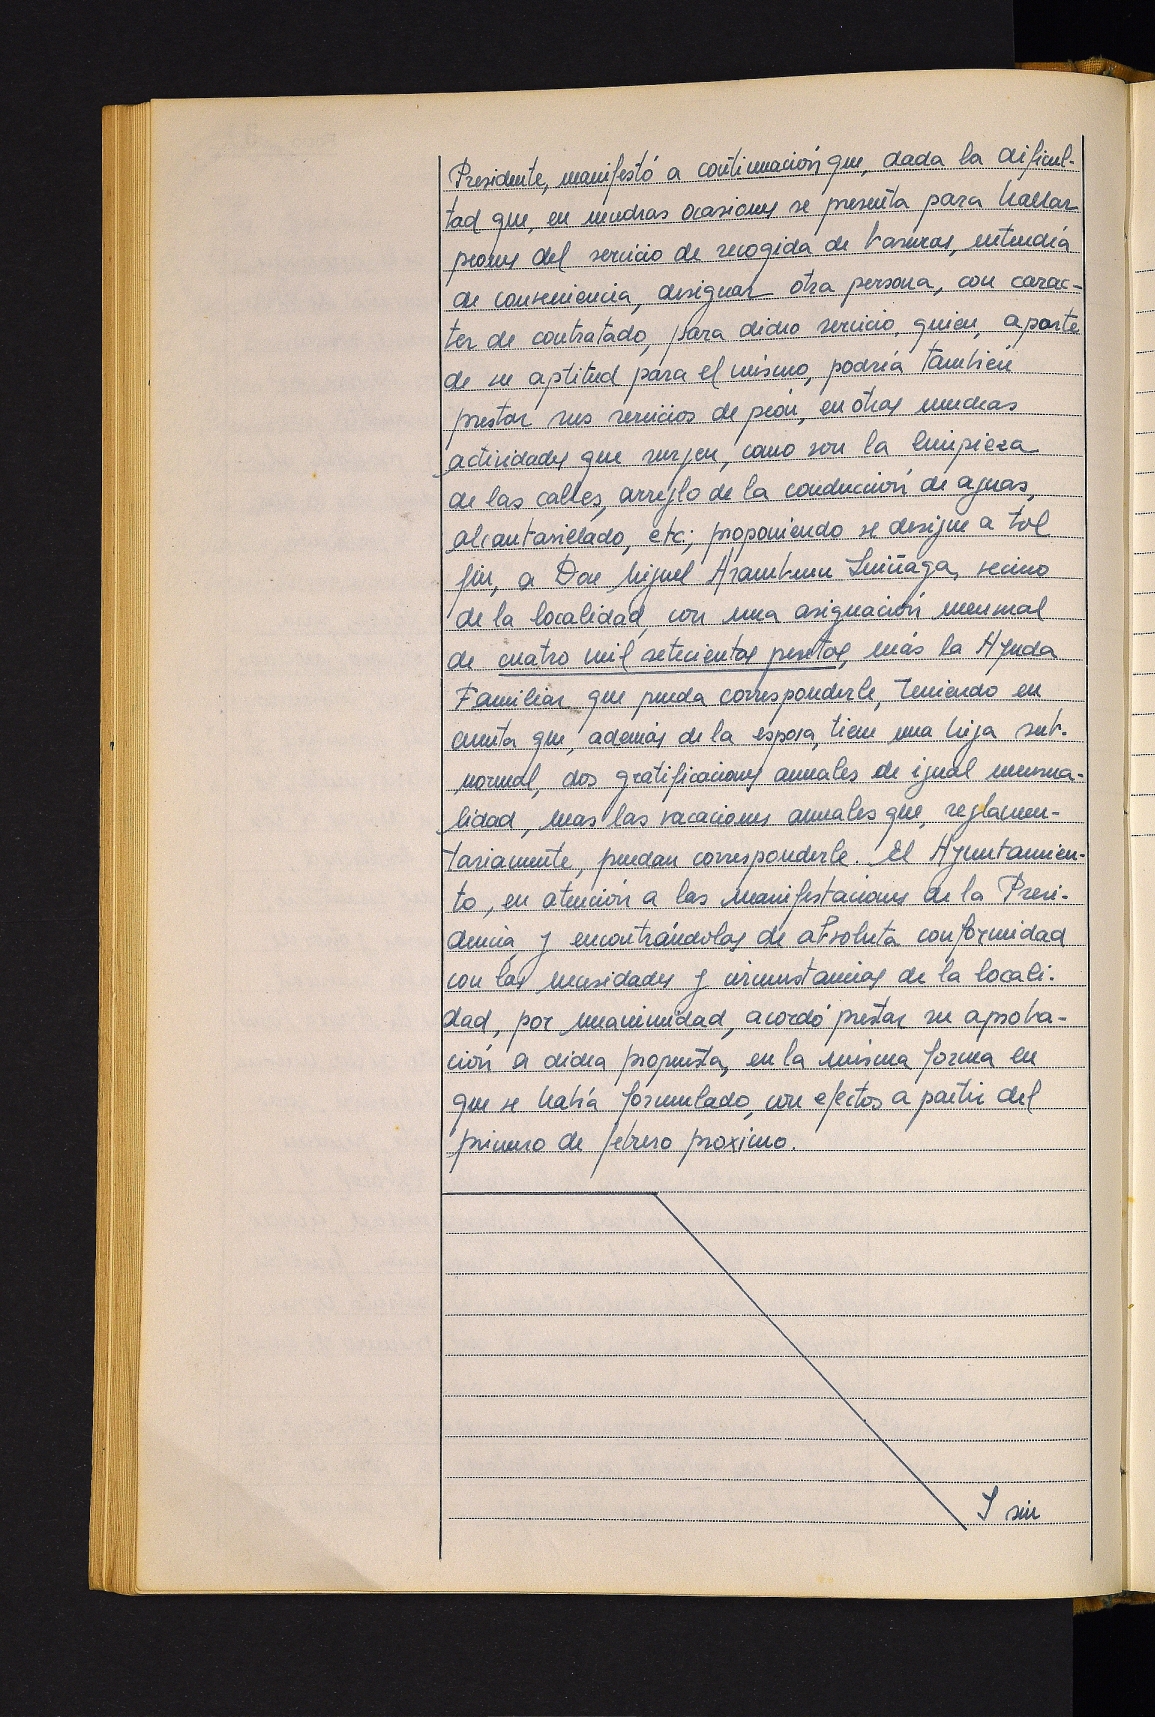 Presidente, manifestó a continuación que, dada la dificul-
tad que, en muchas ocasiones se presenta para hallar
peones del servicio de recogida de basuras, entendía
de conveniencia, designar otra persona, con carac-
ter de contratado, para dicho servicio, quien, aparte
de su aptitud para el mismo, podría también
prestar sus servicios de peón, en otras muchas
actividades que surjen, como son la limpieza
de las calles, arreglo de la conducción de aguas,
alcantarillado, etc; proponiendo se designe a tal
fin, a Don Miguel Aramburu Luiñaga, vecino
de la localidad, con una asignación mensual
de cuatro mil setecientas pesetas, más la Ayuda
Familiar que pueda corresponderle, teniendo en
cuenta que, además de la esposa, tiene una hija sub-
normal, dos gratificaciones anuales de igual mensua-
lidad, mas las vacaciones anuales que, reglamen-
tariamente, puedan corresponderle. El Ayuntamien-
to, en atención a las manifestaciones de la Presi-
dencia y encontrándolas de absoluta conformidad
con las necesidades y circunstancias de la locali-
dad, por unanimidad, acordó prestar su aproba-
ción a dicha propuesta, en la misma forma en
que se había formulado, con efectos a partir del
primero de febrero proximo.
Y sin